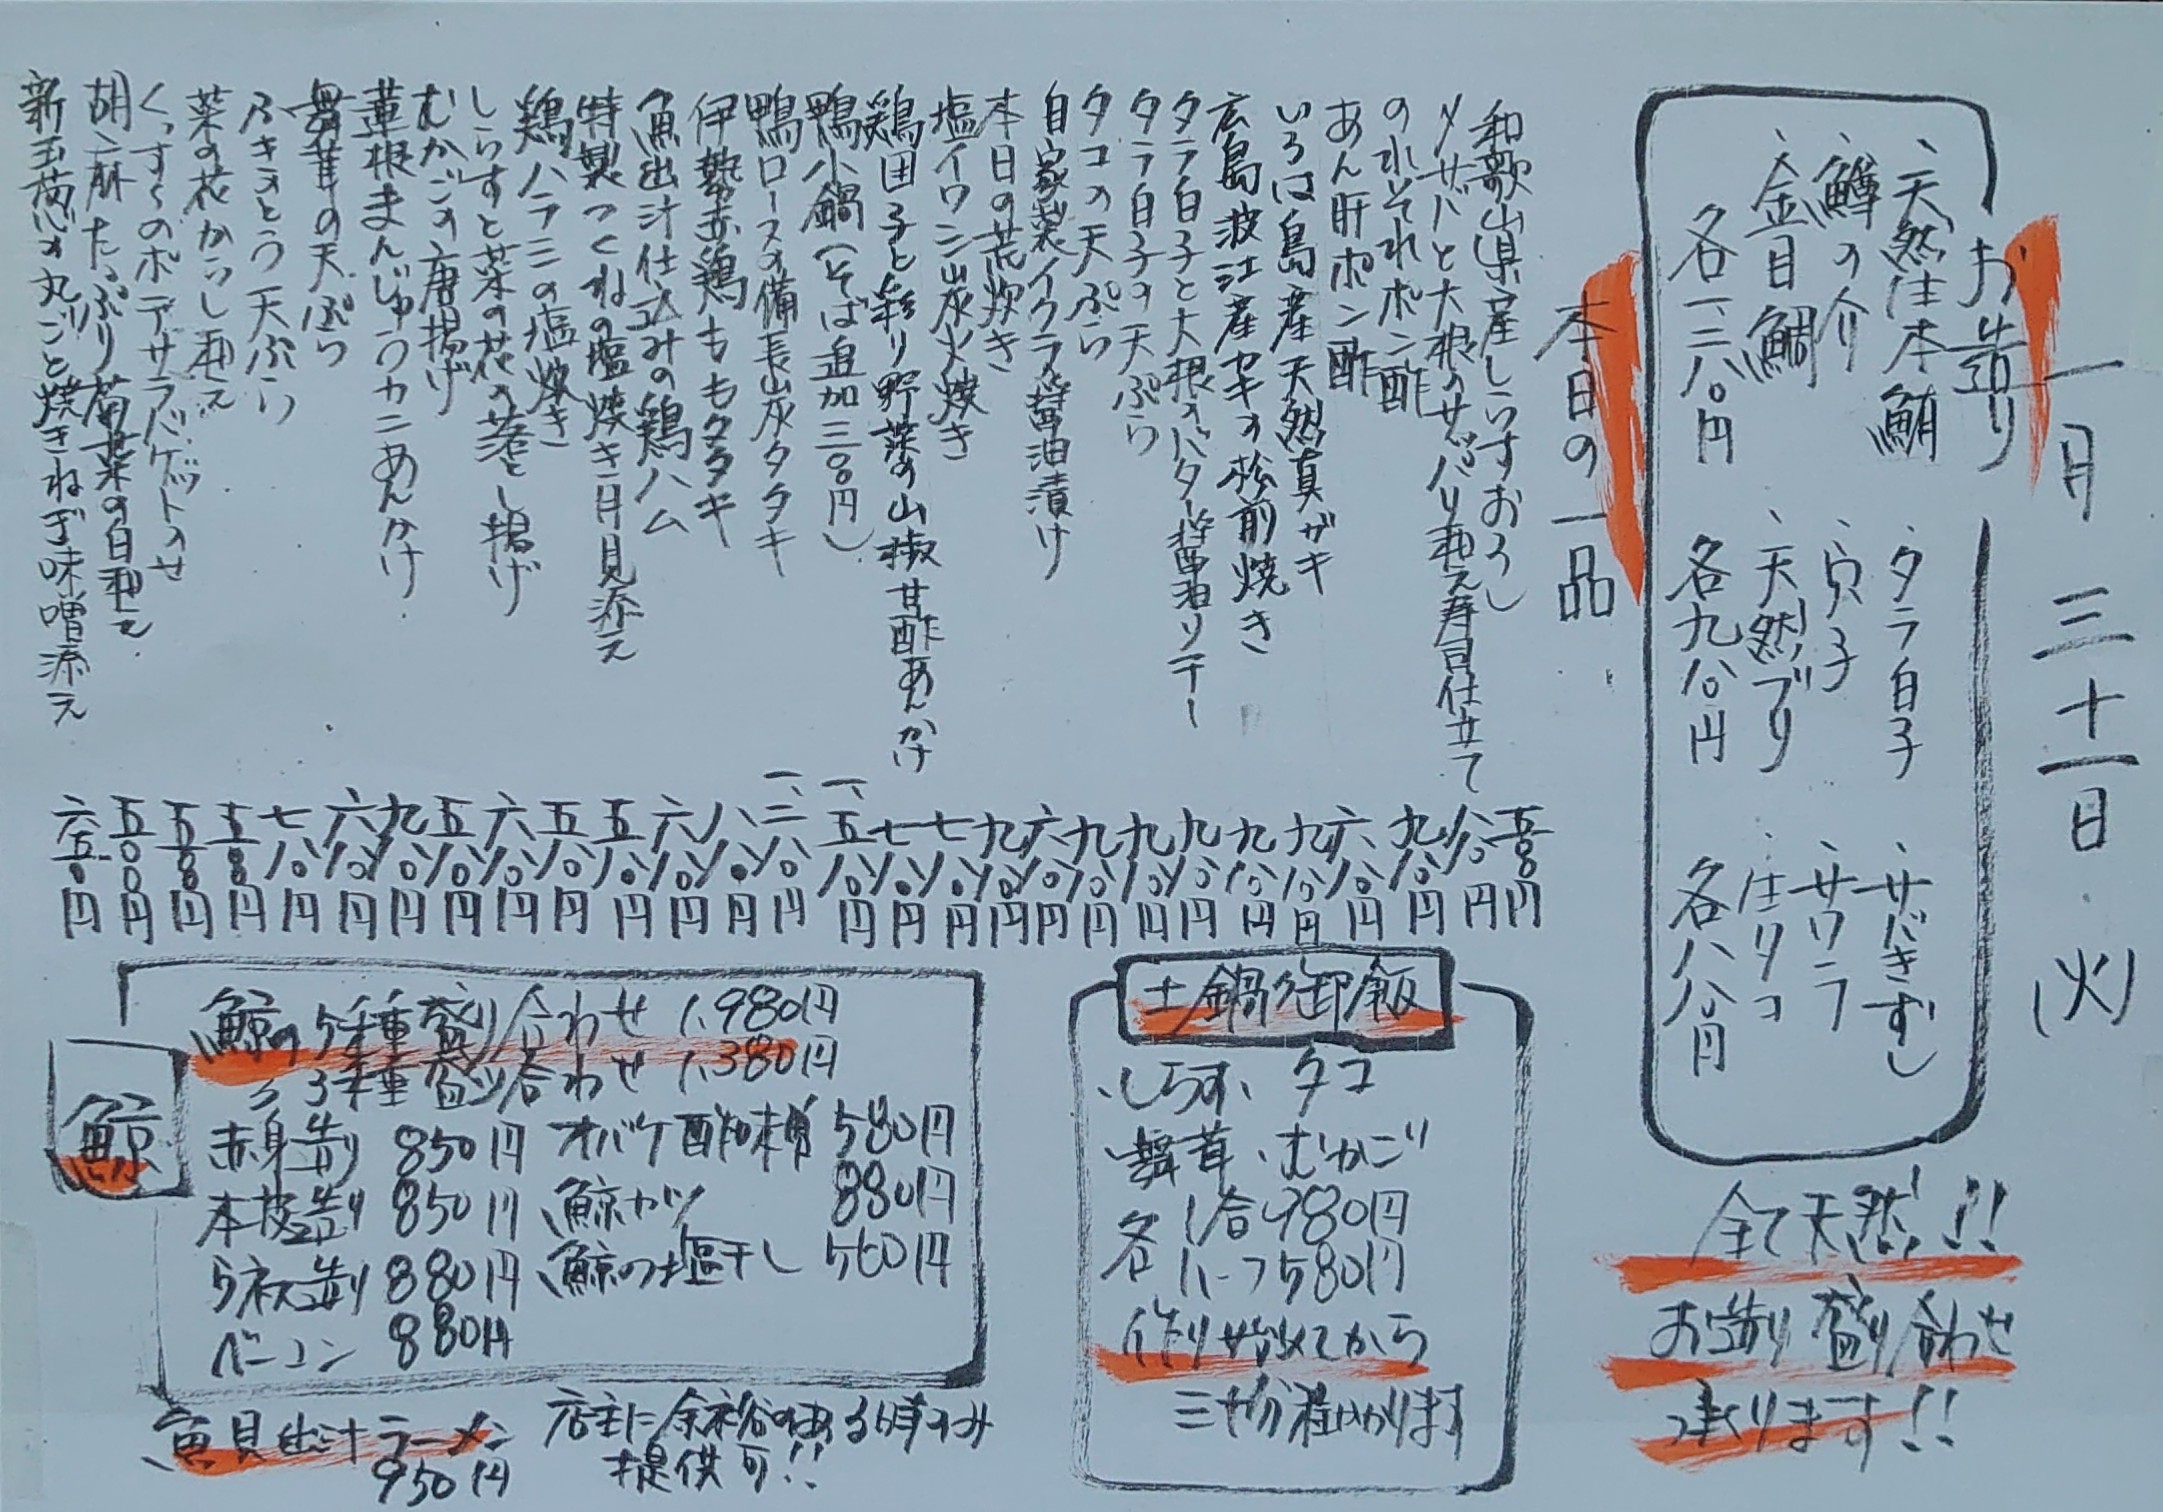 一月三十一日(火)
お造り
、天然注本鮪
、鱒の介
、金目鯛
各一、三八〇円
、タラ白子
、穴子
、天然ブリ
各九八〇円
、サバきずし
、サワラ
、活タコ
各八八〇円
全て天然!!
お造り盛り合わせ
承ります!!
本日の一品
和歌山県産しらすおろし 五〇〇円
〆サバと大根のサッパリ和え寿司仕立て 八八〇円
のれそれポン酢 九八〇円
あん肝ポン酢 六八〇円
いろは島産天然真ガキ 九八〇円
広島波江産カキの松前焼き 九八〇円
タラ白子と大根のバター醤油ソテー 九八〇円
タラ白子の天ぷら 九八〇円
タコの天ぷら 九八〇円
自家製イクラ醤油漬け 六八〇円
本日の荒炊き 九八〇円
塩イワシ炭火焼き 七八〇円
鶏団子と彩り野菜の山椒甘酢あんかけ 七八〇円
鴨小鍋(そば追加三三〇円) 一、五八〇円
鴨ロースの備長炭タタキ 一、三八〇円
伊勢赤鶏ももタタキ 八八〇円
魚出汁仕込みの鶏ハム 六八〇円
特製つくねの塩焼き月見添え 五八〇円
鶏ハラミの塩焼き 五八〇円
しらすと菜の花の落とし揚げ 六八〇円
むかごの唐揚げ 五八〇円
蓮根まんじゅうカニあんかけ 九八〇円
舞茸の天ぷら 六八〇円
ふきのとう天ぷら 七八〇円
菜の花からし和え 五五〇円
くっすくのポテサラバゲットのせ 五五〇円
胡麻たっぷり菊菜の白和え 五〇〇円
新玉葱の丸ごと焼きねぎ味噌添え 六五〇円
土鍋御飯
、しらす、タコ
、舞茸、むかご
各1合980円
各ハーフ580円
作り始めてから
三十分程かかります
鯨
鯨の5種盛り合わせ 1,980円
〃3種盛り合わせ 1,380円
赤身造り 850円 オバケ酢味噌 580円
本皮造り 850円 、鯨カツ 880円
さえずり造り 880円 、鯨の塩干し 560円
ベーコン 880円
魚貝出汁ラーメン
950円
店主に余裕のある時のみ
提供可!!